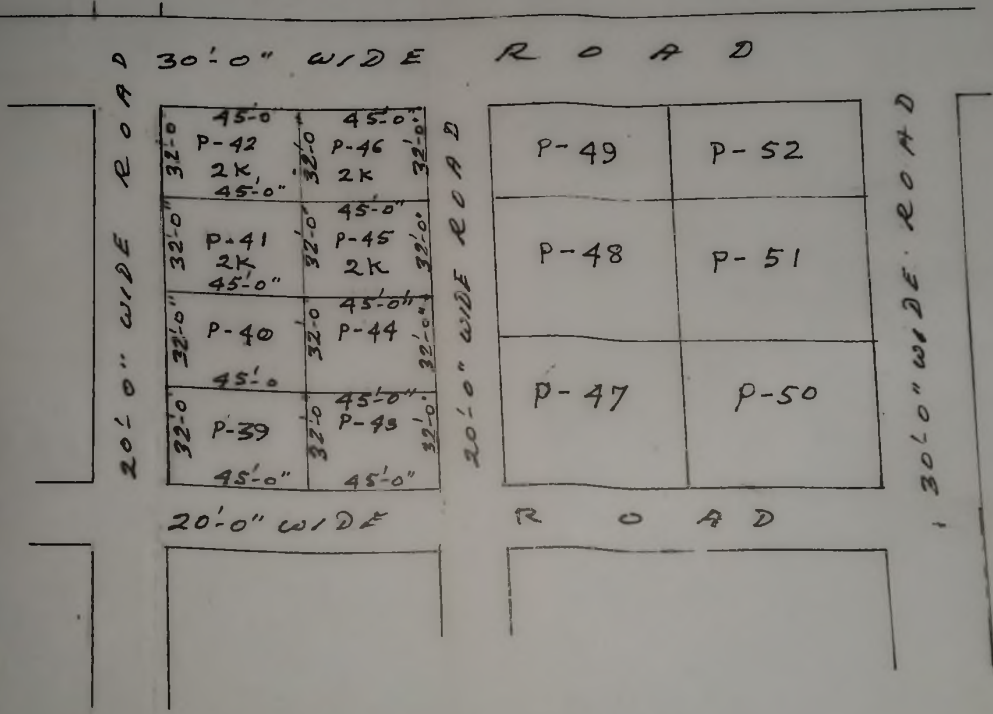 30'-0" WIDE ROAD
20'-0" WIDE ROAD
45-0
32'-0
P-42
2K
45'-0"
32'-0
45'-0"
P-46
2K
32'-0"
32'-0"
P-41
2K
45'-0"
32'-0"
45'-0"
P-45
2K
32'-0"
32'-0"
P-40
45'-0
32'-0
45'-0"
P-44
32'-0"
32'-0
P-39
45'-0"
32'-0
45'-0"
P-43
32'-0"
45'-0"
20'-0" WIDE ROAD
P-49
P-52
P-48
P-51
P-47
P-50
30'-0" WIDE ROAD
20'-0" WIDE ROAD